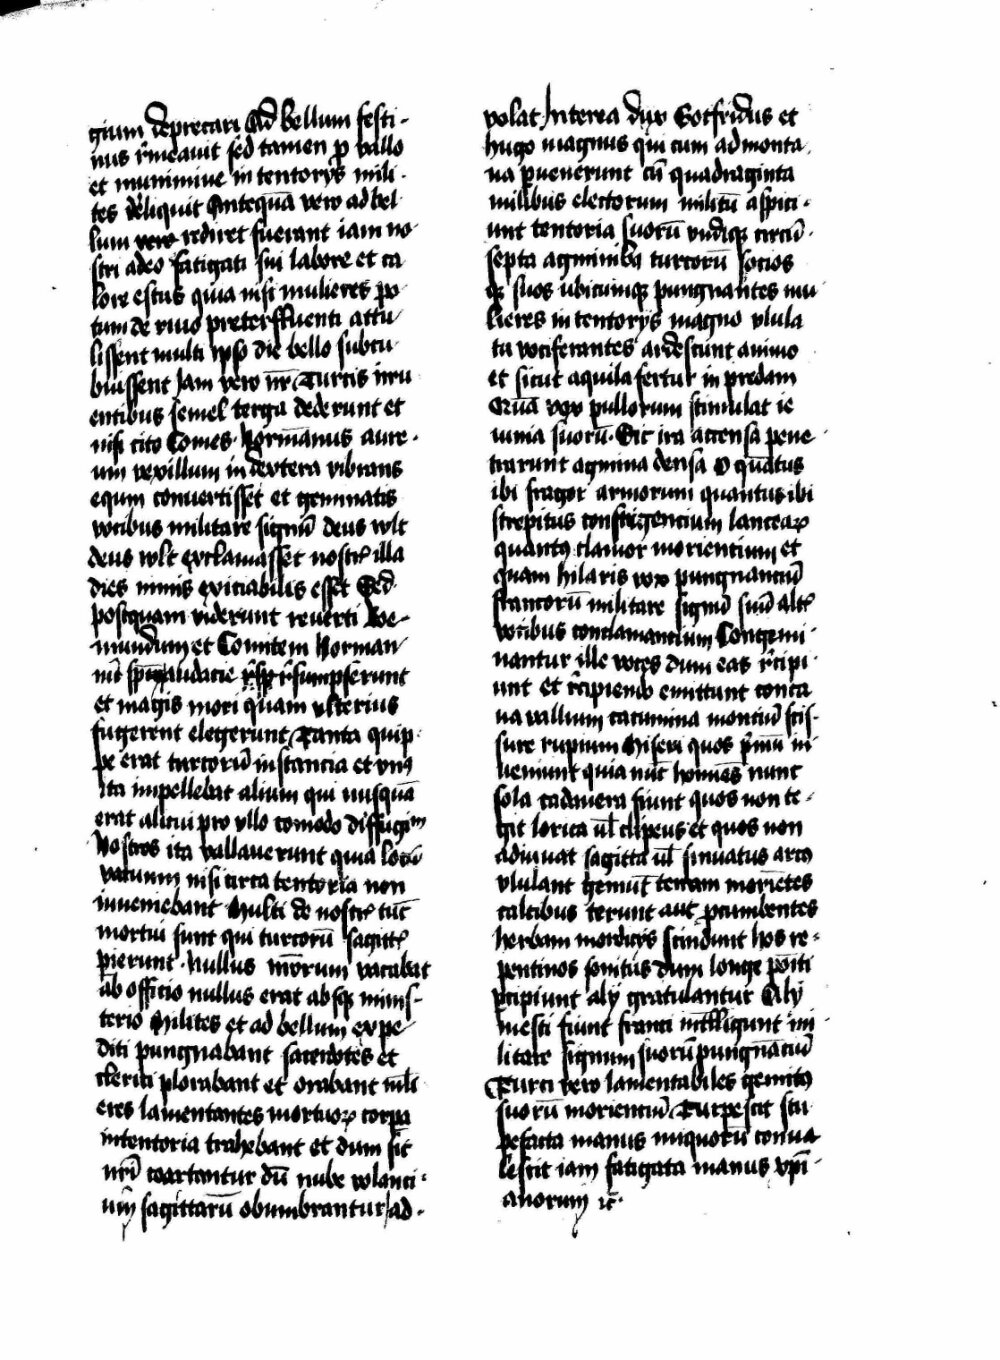 gium deprecari Ad bellum festi-
nus rͤmeauit sed tamen p vallo
et munimine in tentorijs mili-
tes deliquit Antequā vero ad bel-
lum vero rediret fuerant iam no-
stri adeo fatigati sui labore et ca
lore estus quia nisi mulieres po
tum de riuo preterffluenti attu
lissent multi ipso die bello subcu
buissent Jam vero nr̄i Turcis irru
entibus semel terga dederunt et
nisi cito Comes Normānus aure-
um vexillum in dextera vibrans
equm conuertisset et geminatis
vocibus militare signū deus wlt
deus wlt exclamasset nostrͥ illa
dies nimis exiciabilis esset Sed
postquam viderunt reuerti Boe-
mundum et Comitem Norman
nū spm audacie rͤsumpserunt
et magis mori quam vlterius
fugerent elegerunt Tanta quip-
pe erat turcorū instancia et vnꝰ
ita impellebat alium qui nusquā
erat alicui pro vllo comodo diffugiᵐ
Nostros ita vallauerunt quia locū
vacuum nisi circa tentoria non
inueniebant Multi de nostrͥ tūc
mortui sunt qui turcorū sagittͥ
pierunt Nullus nr̄orum vacabat
ab officio nullus erat absqꝫ minis-
terio Milites et ad bellum expe
diti pungnabant sacerdotes et
clerici plorabant et orabant mͥli
eres lamentantes mortuoꝝ corpa
in tentoria trahebant et dum sic̄
nr̄i coartantur dū nube volanci-
um sagittarū obumbrantur ad-
volat Interea dux Gotfridus et
hugo magnus qui cum ad monta
na puenerunt cū quadraginta
milibus electorum militū aspici-
unt tentoria suorū vndiqꝫ circū-
septa agminibꝫ turcorū socios
qꝫ suos vbicumqꝫ pungnantes mu
lieres in tentorijs magno vlula
tu vociferantes ardescunt animo
et sicut aquila fertur in predam
Quā vox pullorum stimulat ie
iunia suorū. Sic ira accensa pene
trarunt agmina densa O quātus
ibi fragor armorum quantus ibi
strepitus confrigencium lanceaꝝ
quantꝰ clamor morientium et
quam hilaris vox pungnanciū
francorū militare signū suū altͥ
vocibus conclamancium Congemi-
nantur ille voces dum eas rͤcipi-
unt et rͤcipiendo emittunt conca
ua vallium cacumina montiū scis-
sure rupium Miseri quos pͥmū in
ueniunt quia nūc homīes nunc
sola cadauera fiunt quos non te-
git lorica ul̄ clipeus et quos non
adiuuat sagitta ul̄ sinuatus arcꝰ
vlulant gemūt terram moriētes
calcibus terunt aut pcumbentes
herbam mordicus scindunt hos re-
pentinos sonitus dum longe poīti
pcipiunt alij gratulantur Alij
mesti fiunt franci intelligunt mi-
litare signum suorū pungnāciū
Turci vero lamentabiles gemitꝰ
suorū morienciū Turpescit stu
pefacta manus iniquorū conua
lescit iam fatigata manus xpi-
anorum ꝛc̄